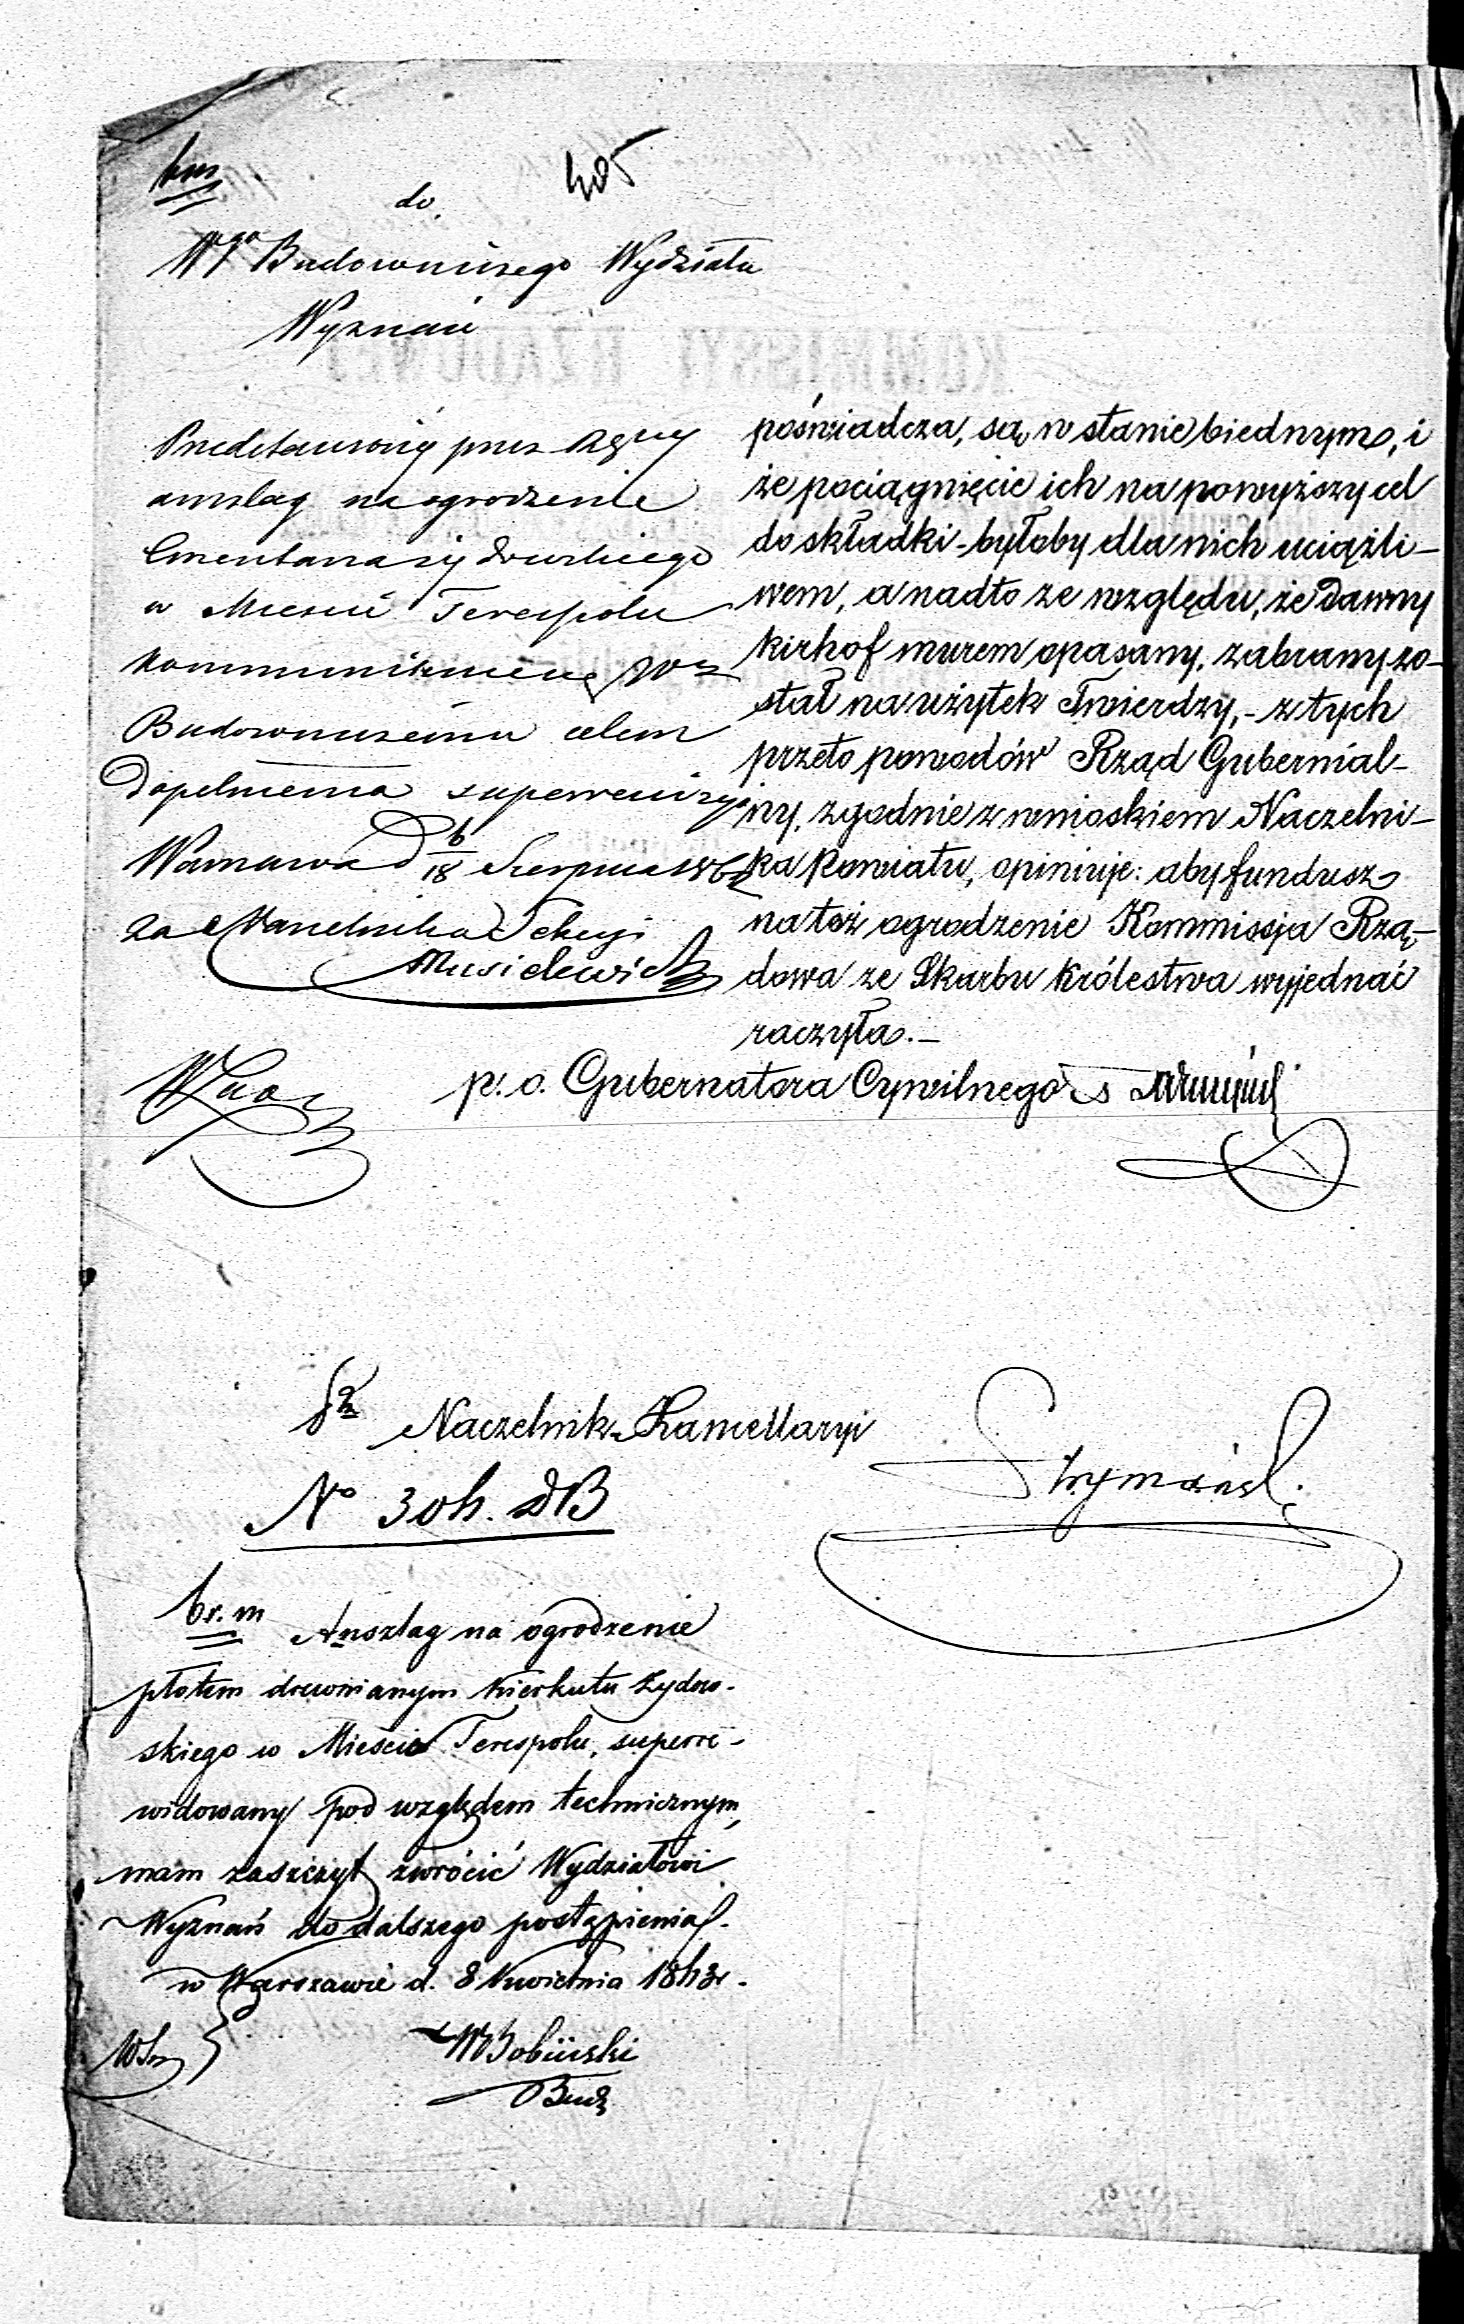 do
Wgo Budowniczego Wydziału
Wyznań
Przedstawiony przez
anszlag na ogrodzenie
Cmentarza żydowskiego
w Mieście Terespolu
kommunikuje się
Budowniczemu celem
dopełnienia superrewizyi
Warszawa d 6/18 Sierpnia
za Naczelnika Sekcyi
Musielewicz
poświadcza, są w stanie biednym, i
że pociągnięcie ich na powyższy cel
do składki – byłoby dla nich uciążli-
wem, a nadto ze względu, że dawny
kirhof murem opasany, zabrany zo-
stał na użytek Twierdzy, – z tych
przeto powodów Rząd Gubernial-
ny, zgodnie z wnioskiem Naczelni-
ka Powiatu, opiniuje: aby fundusz
na toż ogrodzenie Kommissja Rzą-
dowa ze Skarbu Królestwa wyjednać
raczyła. –
p. o. Gubernatora Cywilnego
Naczelnik Kancellaryi
No
Anszlag na ogrodzenie
płotem drewnianym Kierkutu żydow-
skiego w Mieście Terespolu, superre-
widowany pod względem technicznym,
mam zaszczyt zwrócić Wydziałowi
Wyznań do dalszego postąpienia.
w Warszawie d. 8 Kwietnia
Bud